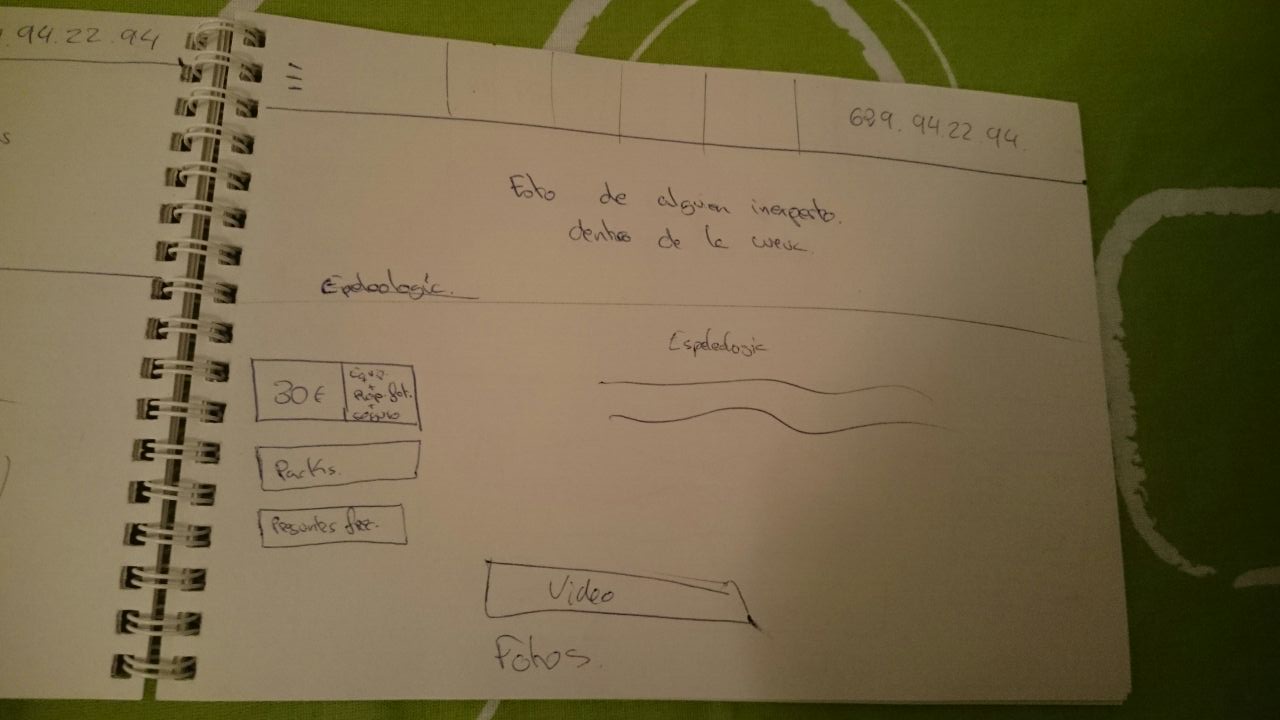 94.22.94
s
639. 94.22.94.
Foto de alguien inexperto.
dentro de la cueva.
Espeleología.
Espeleología
30€
Equip.
+
Rep. fot.
+
seguro
Packs.
Preguntas frec.
Video
Fotos.